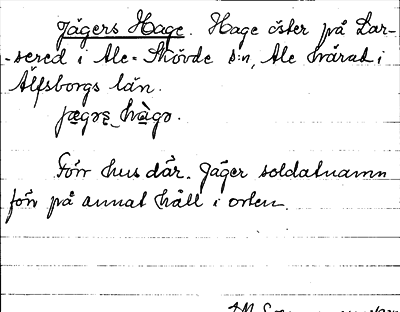 Jägers Hage. Hage öster på Dar-
-sered i Ale-Skövde s:n, Ale härad i
Älfsborgs län.
jægɔṣ hàgɔ.
Förr hus där. Jäger soldatnamn
förr på annat håll i orten.